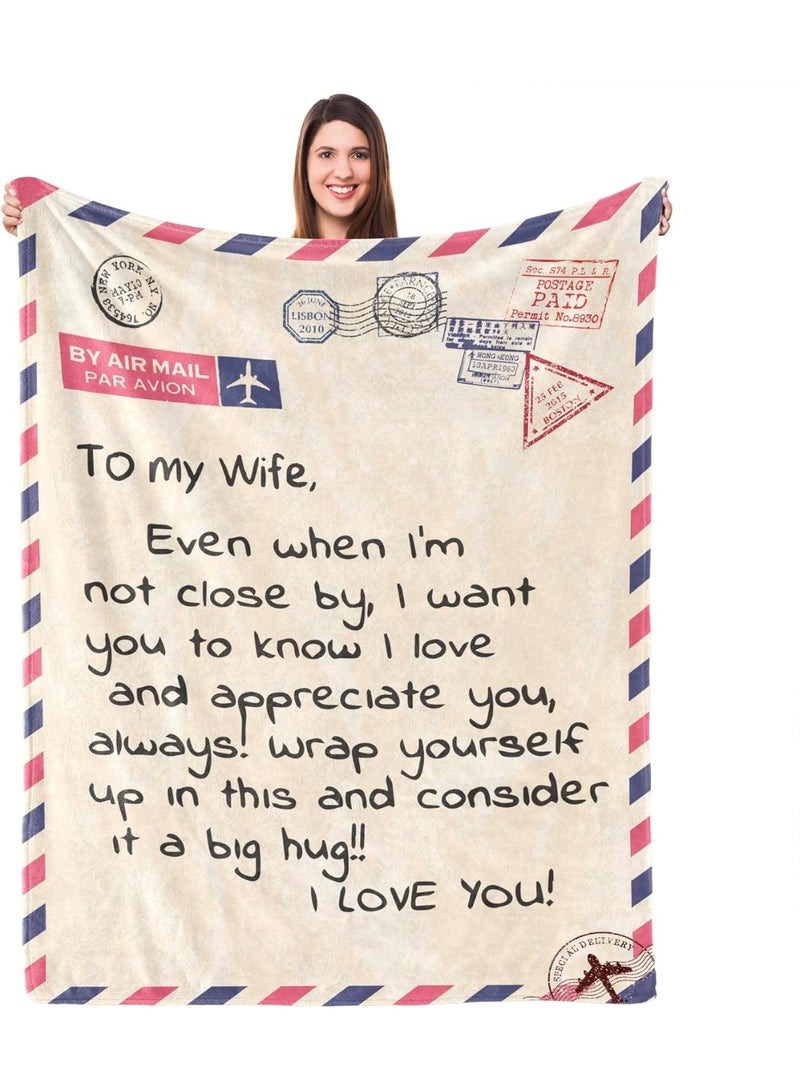 NEW YORK N.Y.
MAY 10
7-PM
NO. 764533
26 JUNE
LISBON
2010
Sec. 574 P.L & R.
POSTAGE
PAID
Permit No.8930
HONG-KONG
25 FEB
2015
BOSTON
BY AIR MAIL
PAR AVION
TO my Wife,
Even when I'm
not close by, I want
you to know I love
and appreciate you,
always! wrap yourself
up in this and consider
it a big hug!!
I LOVE YOU!
SPECIAL DELIVERY